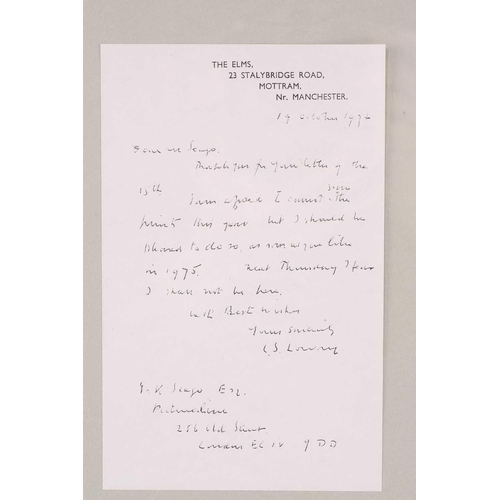 THE ELMS,
23 STALYBRIDGE ROAD,
MOTTRAM,
Nr. MANCHESTER.
19 October 1974
Dear Mr Seago.
Thank you for your letter of the
15th. I am afraid I cannot sign the
prints this year but I should be
pleased to do so, as soon as you like
in 1975. Next Thursday I fear
I shall not be here.
with Best wishes
Yours sincerely
L.S. Lowry
K Seago Esq.
256 Old Street
London EC1V 9DD